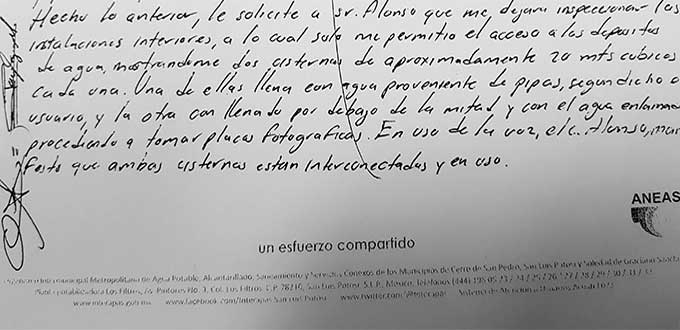 Hecho lo anterior, le solicite a sr. Alonso que me dejara inspeccionar las
instalaciones interiores, a lo cual solo me permitio el acceso a los depositos
de agua, mostrandome dos cisternas de aproximadamente 20 mts cubicos
cada una. Una de ellas llena con agua proveniente de pipas, segun dicho
usuario, y la otra con llenado por debajo de la mitad y con el agua
procediendo a tomar placas fotograficas. En uso de la voz, el c. Alonso, mani
festo que ambas cisternas estan interconectadas y en uso.
ANEAS
un esfuerzo compartido
Intermunicipal Metropolitano de Agua Potable, Alcantarillado, Saneamiento y Servicios Conexos de los Municipios de Cerro de San Pedro, San Luis Potosí y Soledad de Graciano Sánchez
Planta potabilizadora Los Filtros, Av. Pintores No. 3, Col. Los Filtros C.P. 78210, San Luis Potosí S.L.P., México, Teléfonos (444)
www.interapas.gob.mx www.facebook.com/Interapas San Luis Potosí www.twitter.com/@Interapas